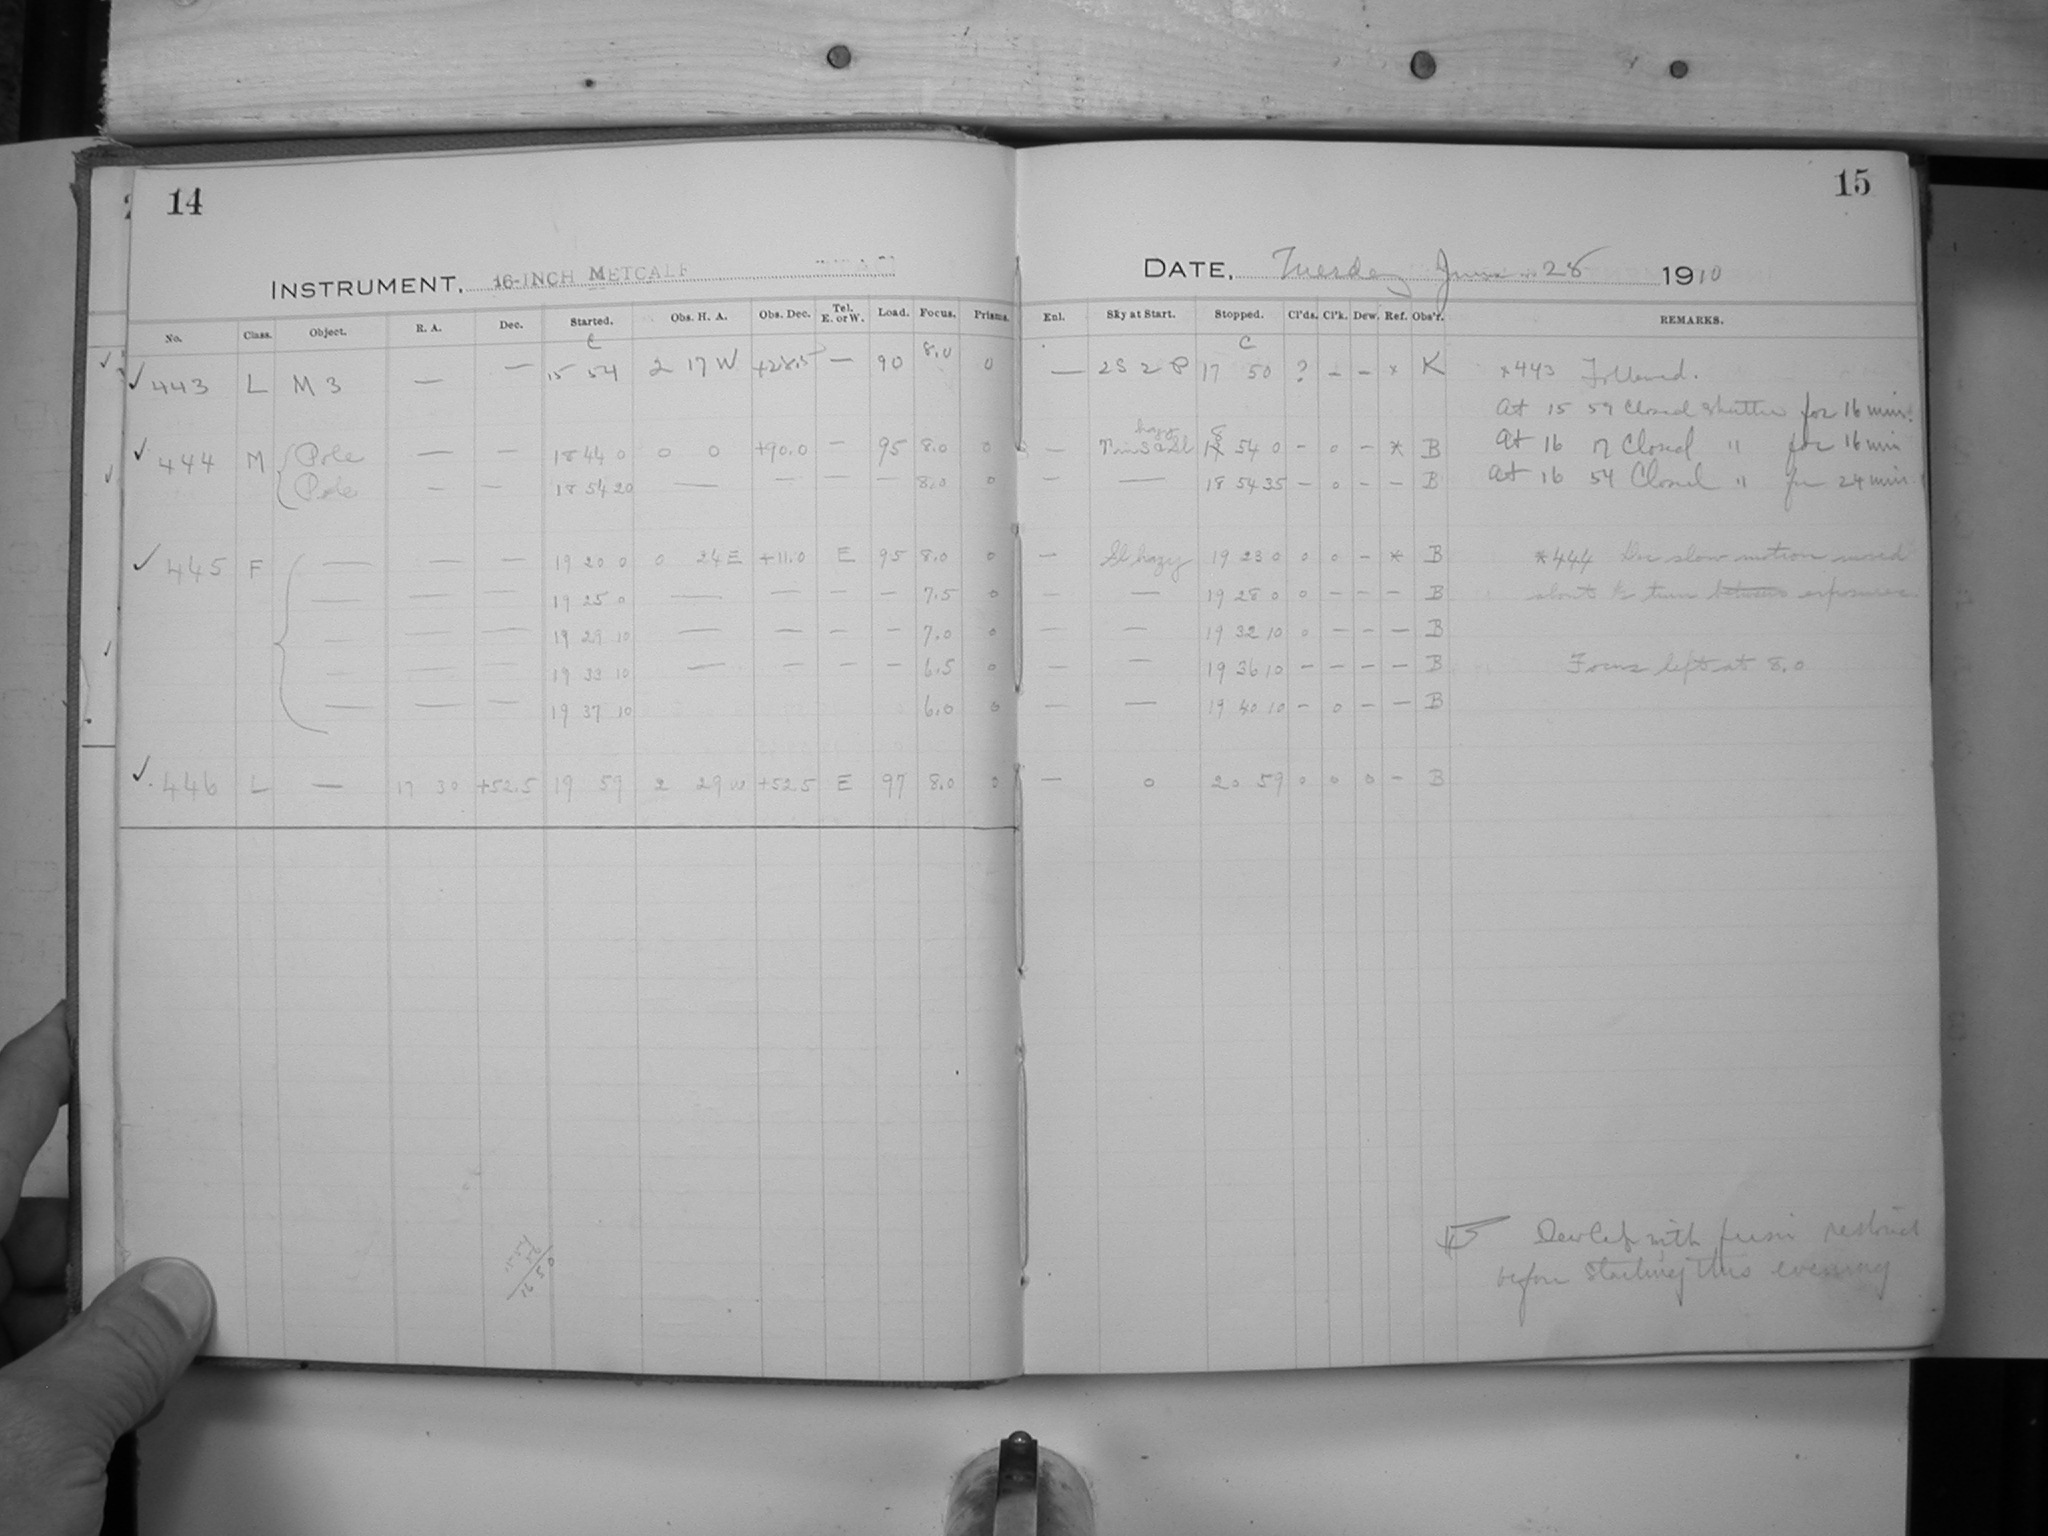 14
15
INSTRUMENT, 16-INCH METCALF
DATE, Tuesday June 28 1910
No. Class. Object. R. A. Dec. Started. Obs. H. A. Obs. Dec. Tel. E. or W. Load. Focus. Prisms. Enl. Sky at Start. Stopped. Cl'ds. Cl'k. Dew. Ref. Obs'r. REMARKS.
C C
✓ 443 L M 3 — — 15 54 2 17 W +28.5 — 90 8.0 0 — 2S 2 P 17 50 ? – – * K *443 Followed.
At 15 59 Closed shutter for 16 mins.
✓ 444 M Pole — — 18 44 0 0 0 +90.0 — 95 8.0 0 — hazy 18 54 0 – 0 – * B At 16 17 Closed " for 16 min
Pole — — 18 54 20 — — — — 8.0 0 — — 18 54 35 – 0 – – B At 16 54 Closed " for 24 mins
✓ 445 F — — — 19 20 0 0 24 E +11.0 E 95 8.0 0 — Sl hazy 19 23 0 0 0 – * B *444 Dec slow motion moved
— — — 19 25 0 — — — — 7.5 0 — — 19 28 0 0 – – – B about turn between exposures
— — — 19 29 10 — — — — 7.0 0 — — 19 32 10 0 – – – B
— — — 19 33 10 — — — — 6.5 0 — — 19 36 10 – – – – B Focus left at 8.0
— — — 19 37 10 6.0 0 — — 19 40 10 – 0 – – B
✓ 446 L — 17 30 +52.5 19 59 2 29 W +52.5 E 97 8.0 0 — 0 20 59 0 0 0 – B
Dew Cap with restored
before starting this evening
16 50